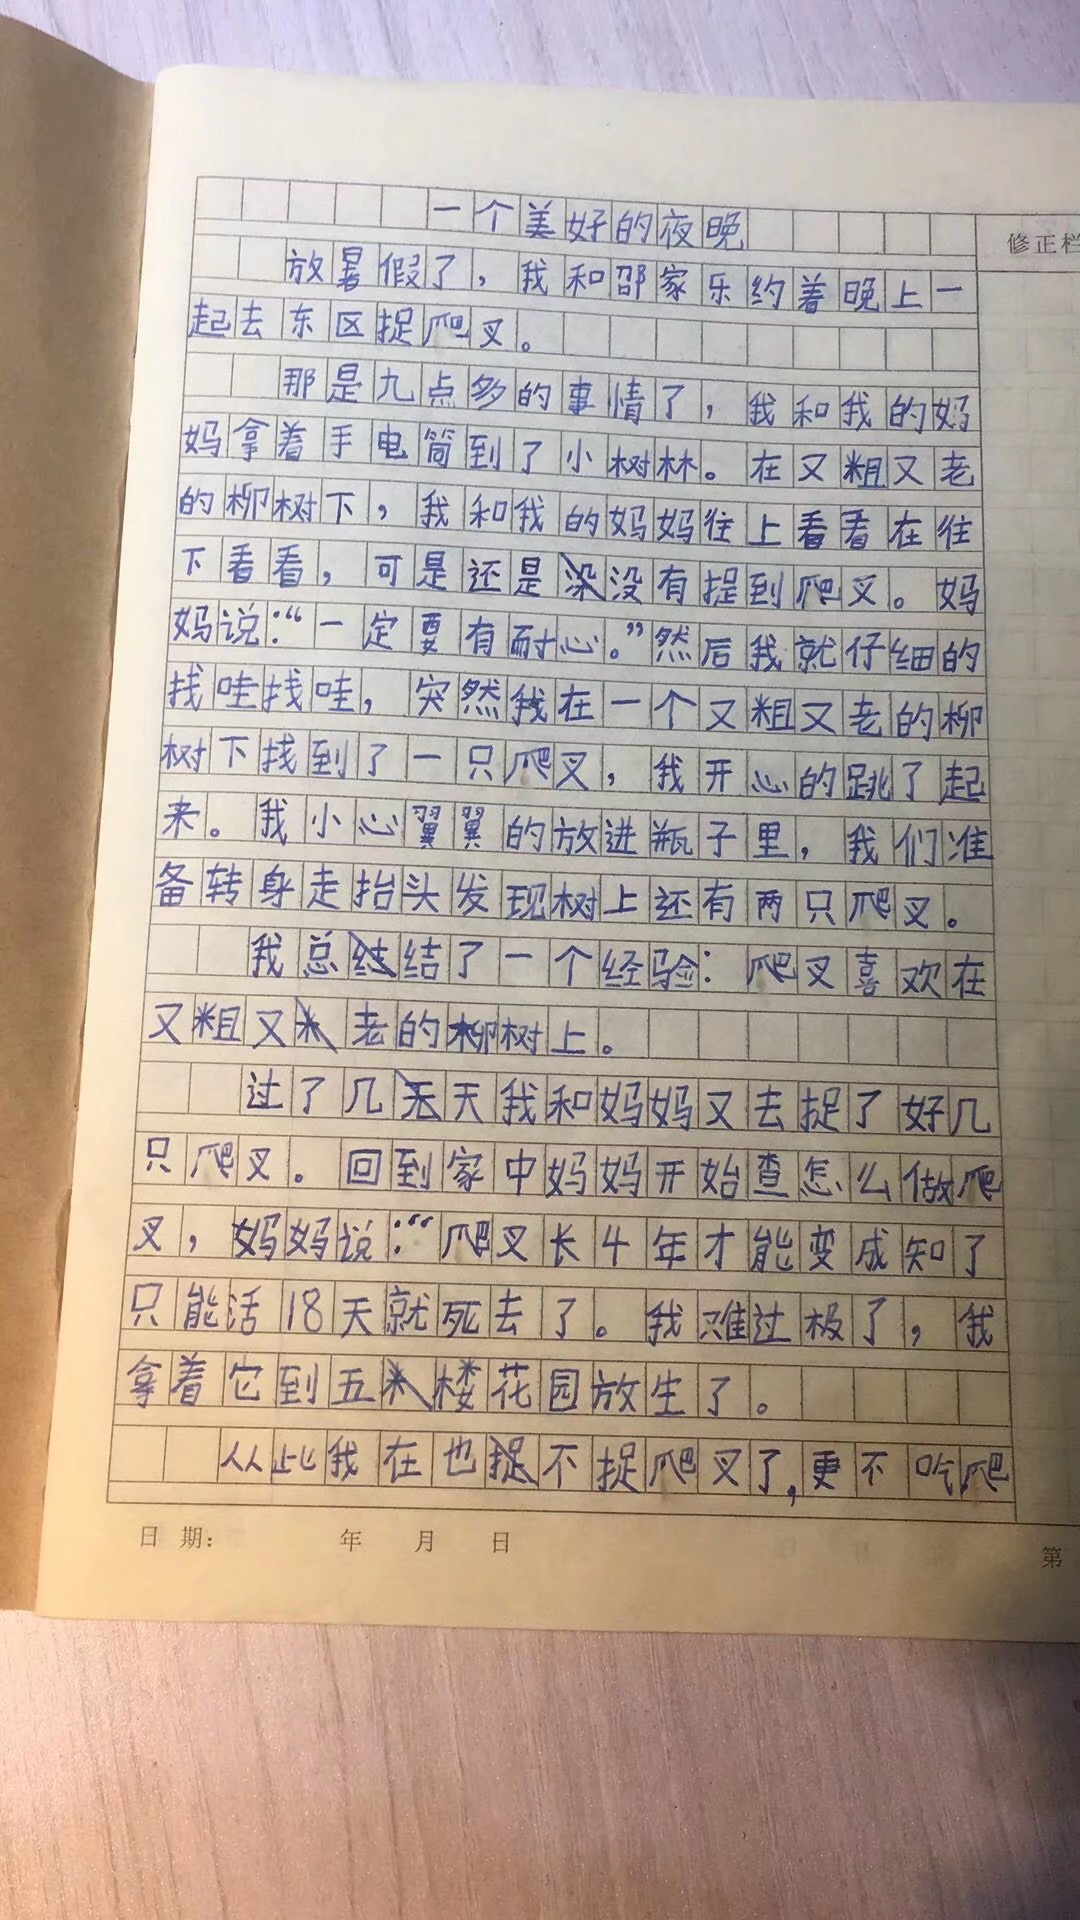 一个美好的夜晚
修正栏
放暑假了，我和邵家乐约着晚上一
起去东区捉爬叉。
那是九点多的事情了，我和我的妈
妈拿着手电筒到了小树林。在又粗又老
的柳树下，我和我的妈妈往上看看在往
下看看，可是还是没有捉到爬叉。妈
妈说：“一定要有耐心。”然后我就仔细的
找哇找哇，突然我在一个又粗又老的柳
树下找到了一只爬叉，我开心的跳了起
来。我小心翼翼的放进瓶子里，我们准
备转身走抬头发现树上还有两只爬叉。
我总结了一个经验：爬叉喜欢在
又粗又老的柳树上。
过了几天我和妈妈又去捉了好几
只爬叉。回到家中妈妈开始查怎么做爬
叉，妈妈说：“爬叉长4年才能变成知了
只能活18天就死去了。我难过极了，我
拿着它到五楼花园放生了。
从此我在也不捉爬叉了，更不吃爬
日期： 年 月 日
第